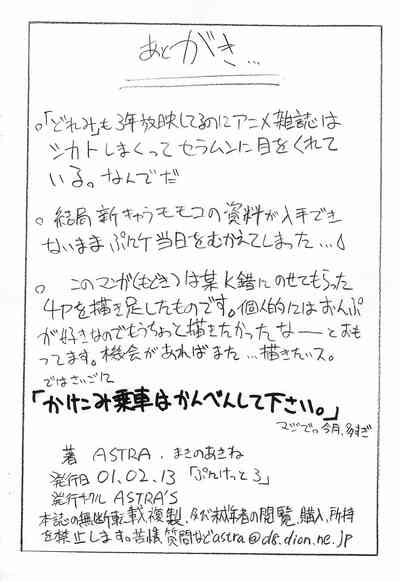 あとがき…
○「どれみ」も3年放映してるのにアニメ雑誌は
シカトしまくってセラムンに目をくれて
いる。なんでだ
○結局新キャラモモコの資料が入手でき
ないままぷんケ当日をむかえてしまった…
○このマンガ(もどき)は某K錯にのせてもらった
4Pを描き足したものです。個人的にはおんぷ
が好きなのでもうちょっと描きたかったなーとおも
ってます。機会があればまた…描きたいス。
ではさいごに
「かけこみ乗車はかんべんして下さい。」
マジでっ今月、多すぎ
著 ASTRA. まきのあきね
発行日 01.02.13 「ぷんけっと3」
発行サークル ASTRA'S
本誌の無断転載複製、
の閲覧、購入、所持
を禁止します。苦情質問などastra@d8.dion.ne.jp